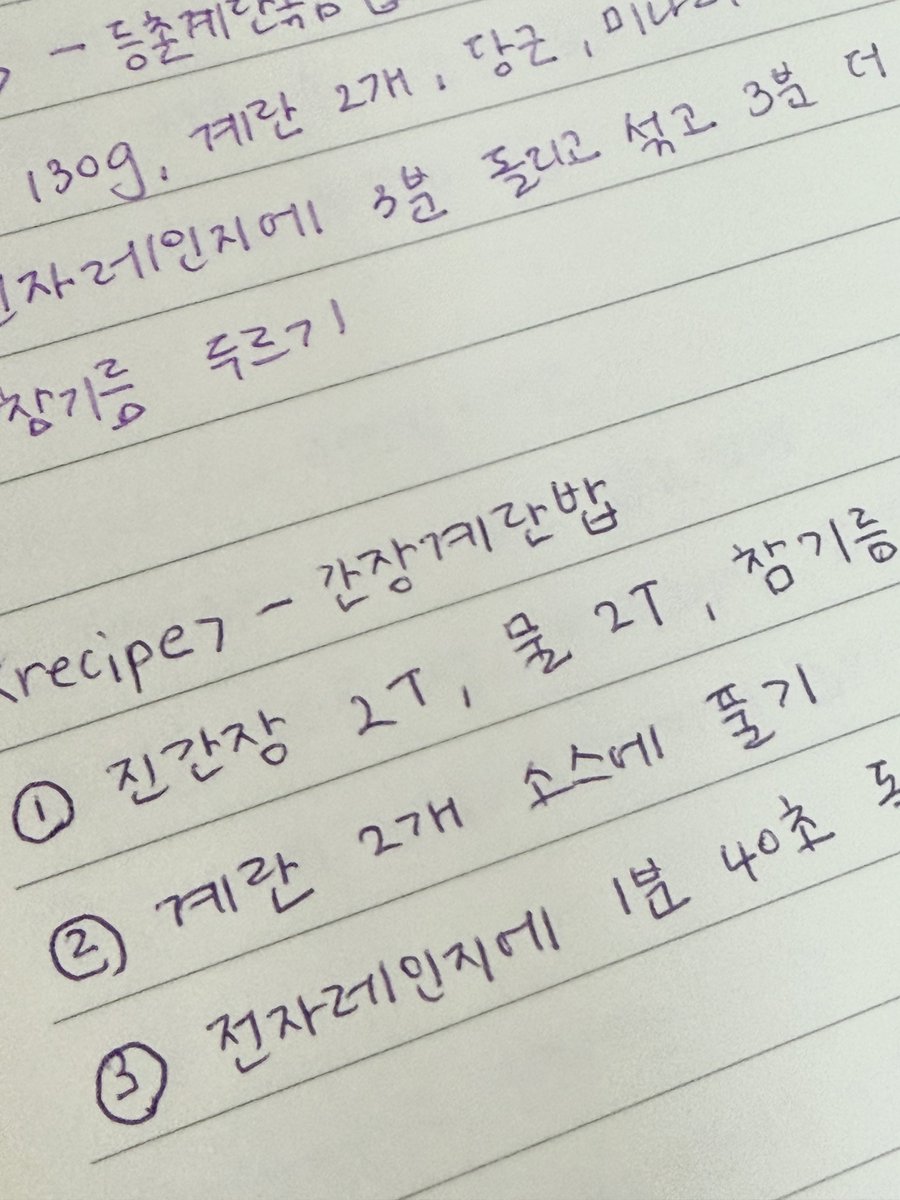 - 등촌계란볶음밥
130g, 계란 2개, 당근, 미나리
전자레인지에 3분 돌리고 섞고 3분 더
참기름 두르기
<recipe7 - 간장계란밥
① 진간장 2T, 물 2T, 참기름
② 계란 2개 소스에 풀기
③ 전자레인지에 1분 40초